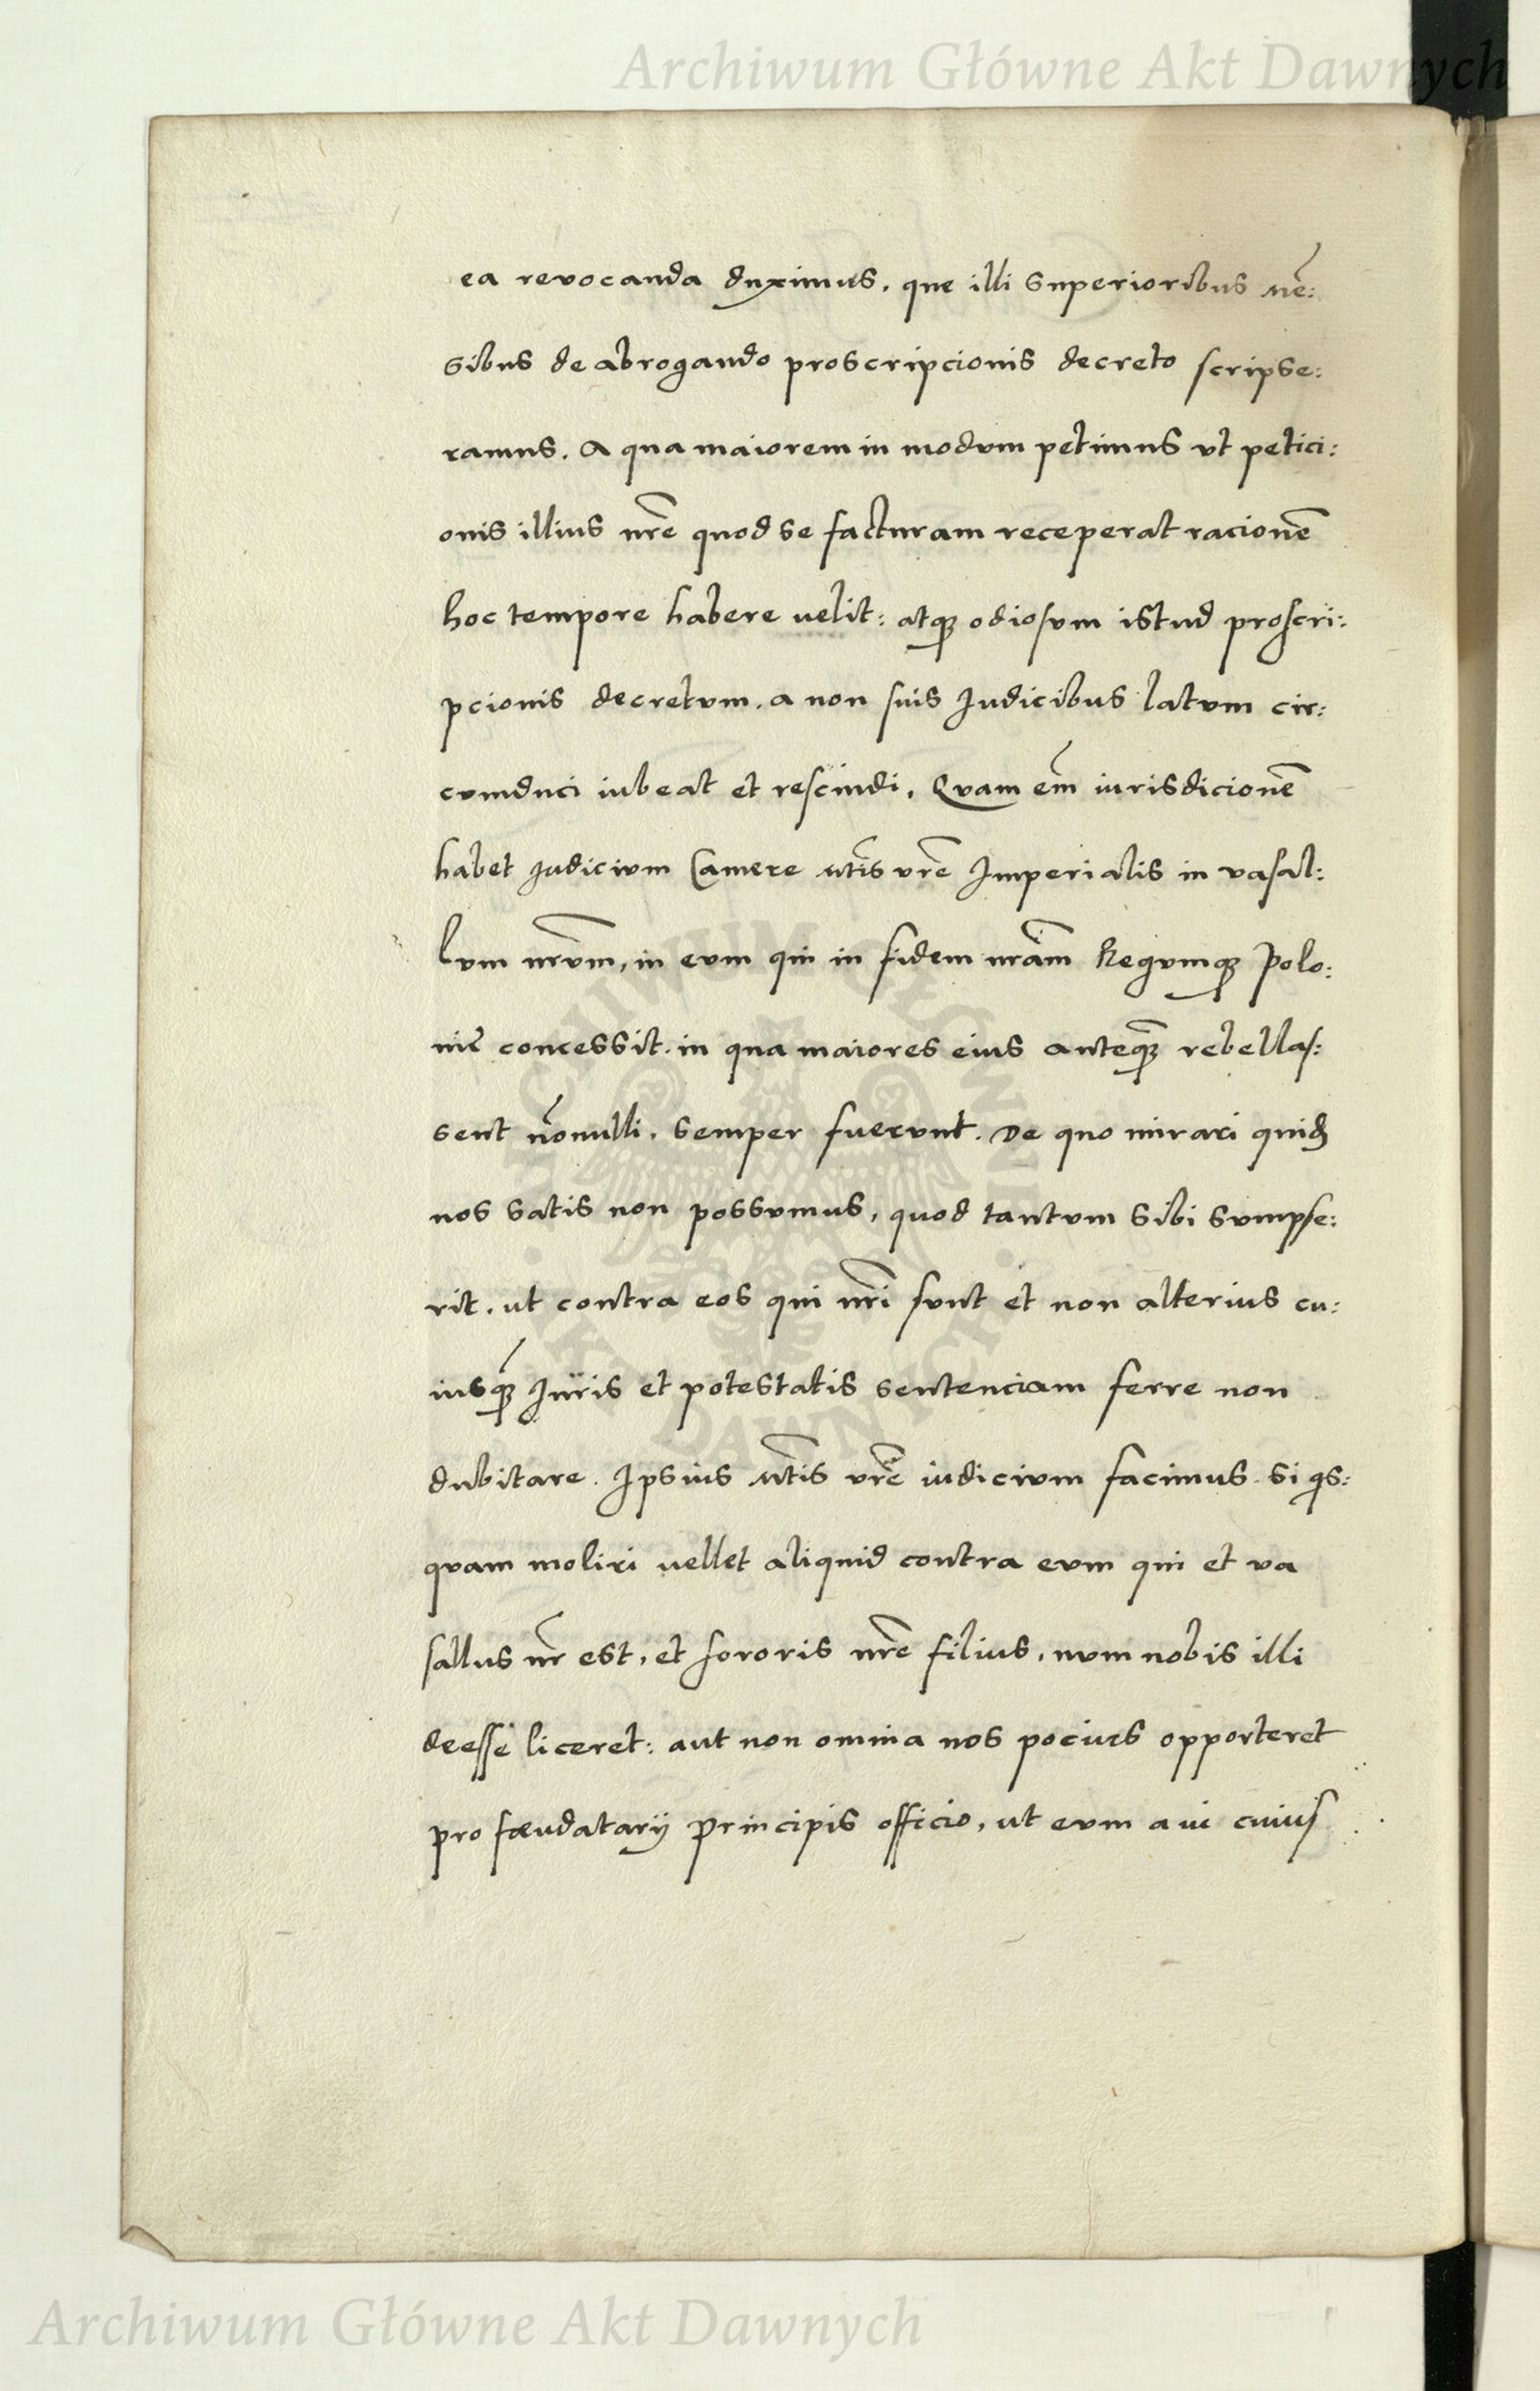 Archiwum Główne Akt Dawnych
ea revocanda duximus, que illi superioribus mē:
sibus de abrogando proscripcionis decreto scripse:
ramus. A qua maiorem in modvm petimus vt petici:
onis illius nr̄e quod se facturam receperat racionē
hoc tempore habere velit: atqȝ odiosvm istud proscri:
pcionis decretvm. a non suis Judicibus latvm cir:
cvmduci iubeat et rescindi. Qvam em̄ iurisdicionē
habet Judicivm Camere Mtis vr̄e Imperialis in vasal:
lvm nr̄vm, in evm qui in fidem nrām Regvmqȝ Polo:
nie concessit. in qua maiores eius anteqȝ̄ rebellas:
sent nōnulli. semper fuervnt. De quo mirari quidē
nos satis non possvmus, quod tantvm sibi svmpse:
rit. ut contra eos qui nr̄i svnt et non alterius cu:
iusqȝ̄ Juris et potestatis sentenciam ferre non
dubitare. Ipsius Mtis vr̄e iudicivm facimus. si qis:
qvam moliri vellet aliquid contra evm qui et va
sallus nr̄ est, et sororis nr̄e filius, nvm nobis illi
deesse liceret: aut non omnia nos pocius opporteret
pro fœudatarij Principis officio, ut evm a vi cuius
ARCHIWUM GŁÓWNE · AKT DAWNYCH ·
Archiwum Główne Akt Dawnych